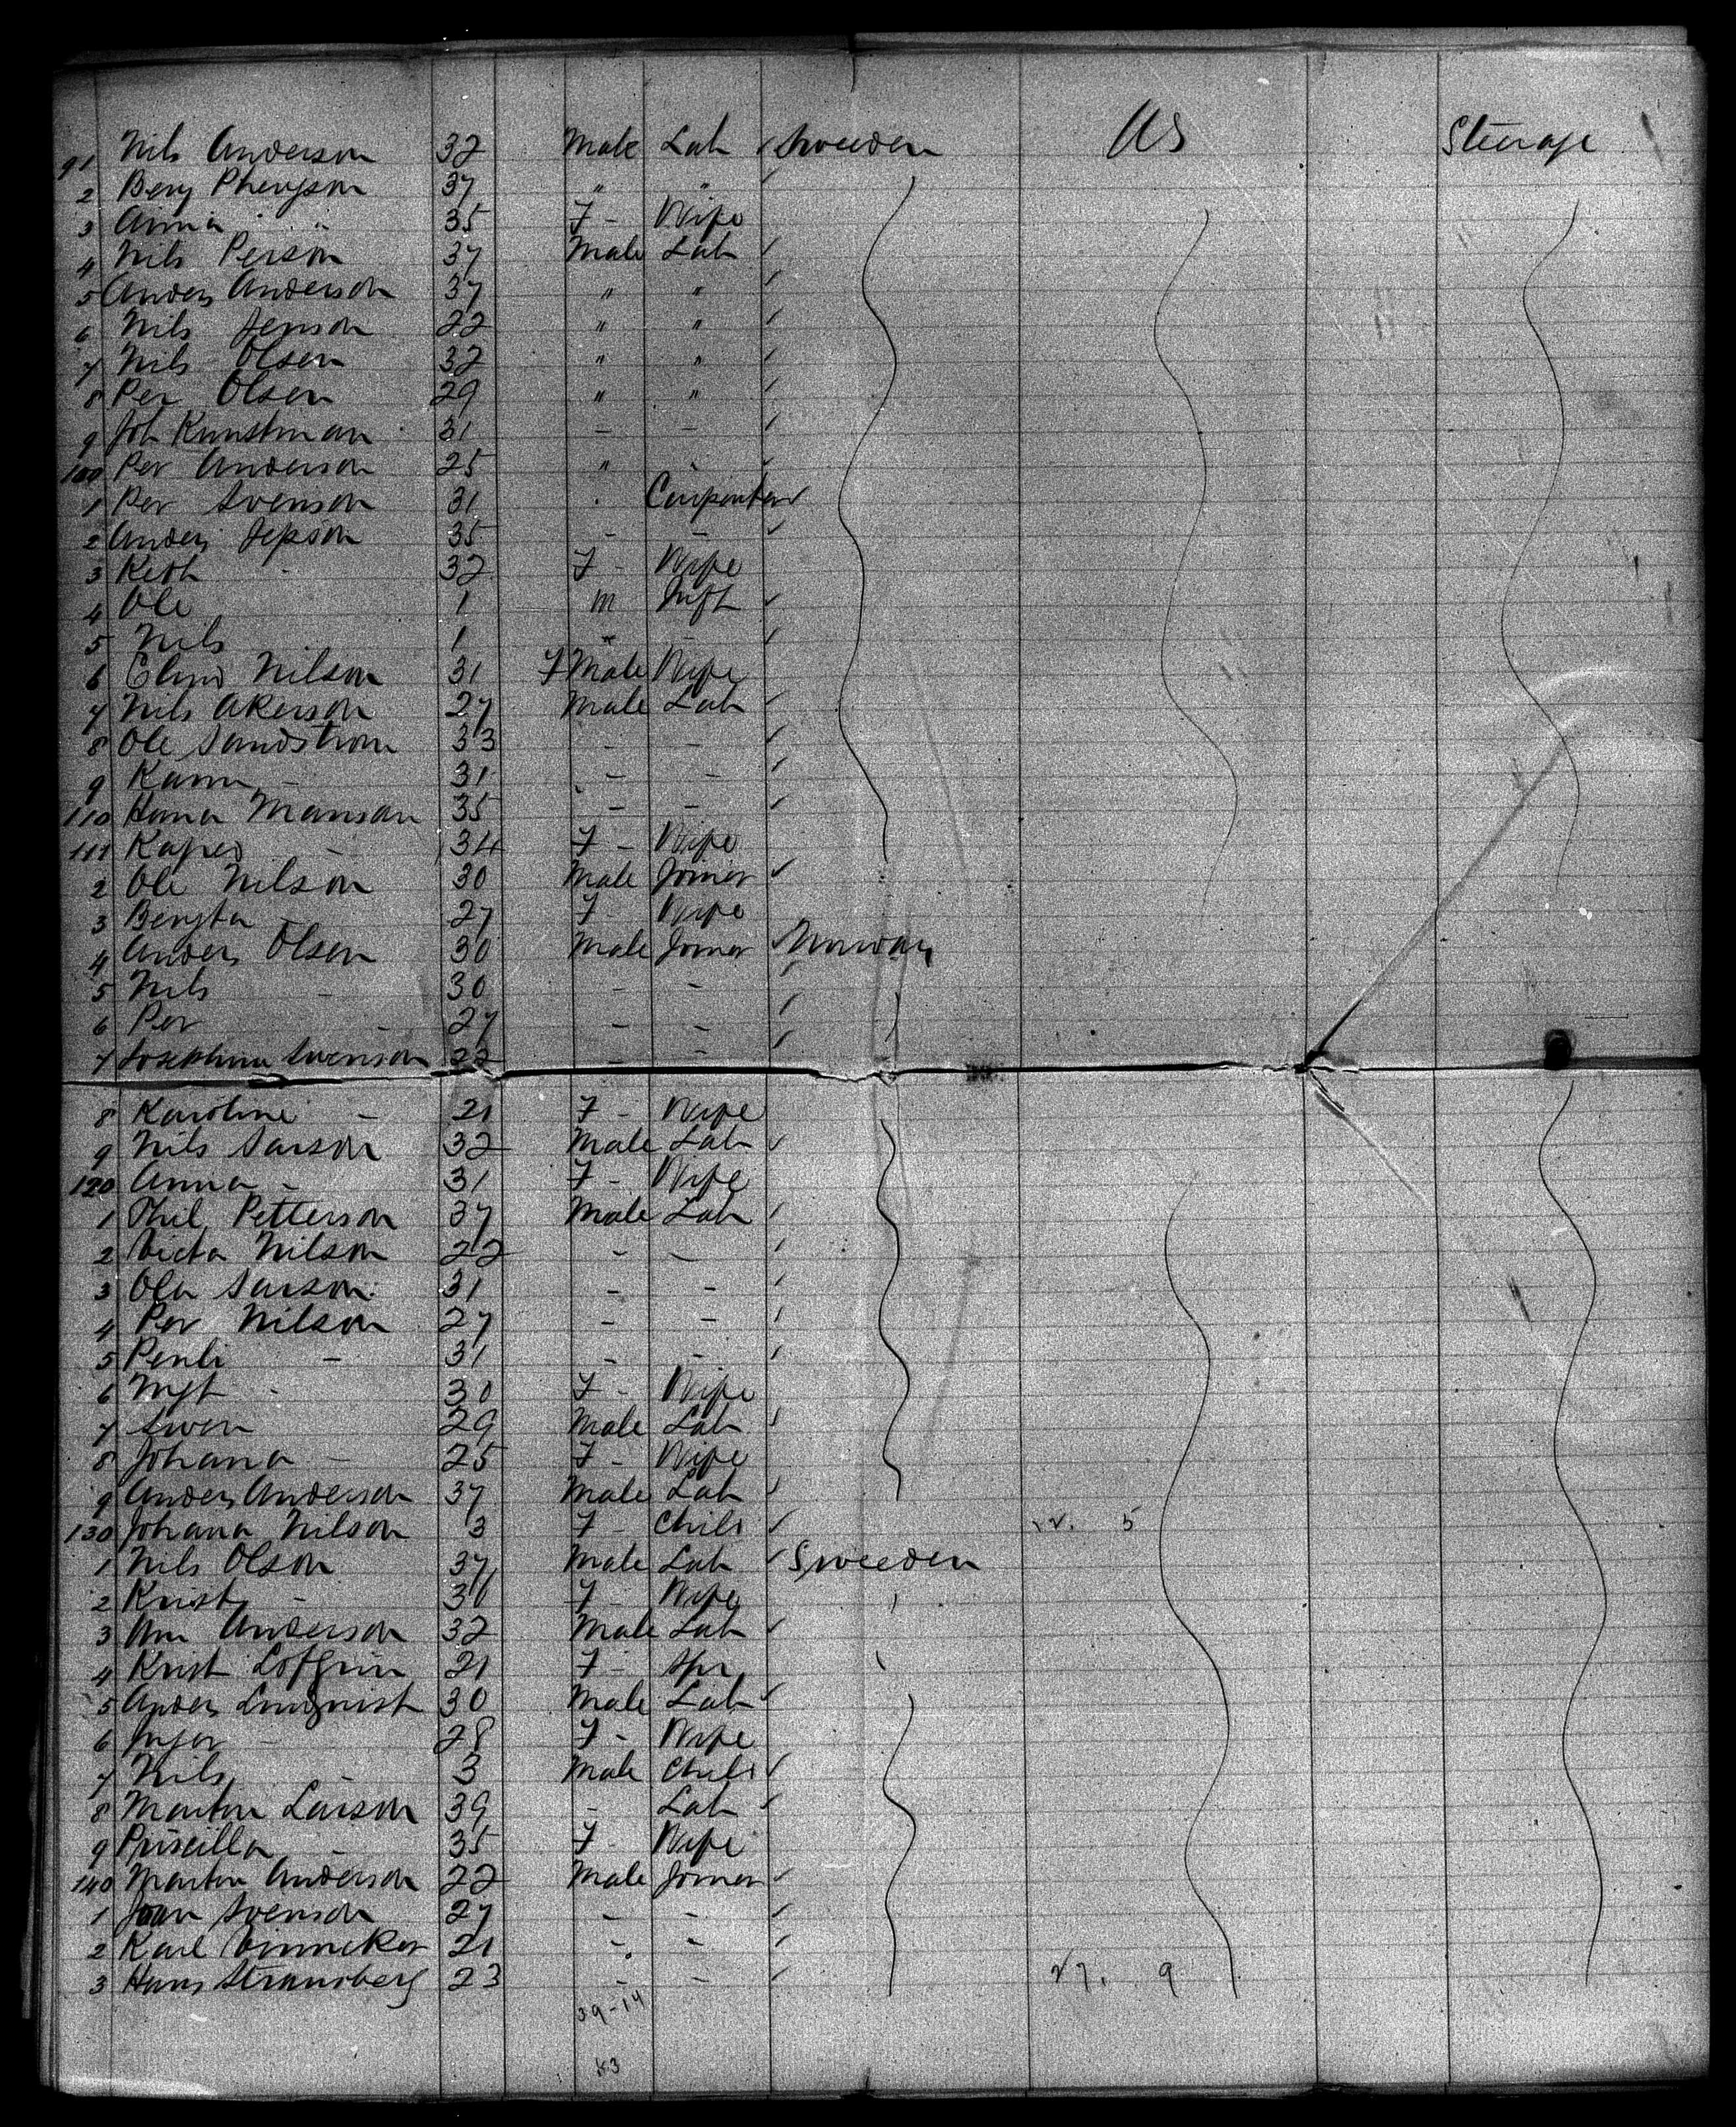 91 Nils Anderson 32 Male Lab ✓ Sweeden US Steerage
2 Beng 37 " " ✓
3 Anna " 35 F - Wife
4 Nils Person 37 Male Lab ✓
5 Anders Anderson 37 " " ✓
6 Nils Jepson 22 " " ✓
7 Nils Olsen 32 " " ✓
8 Per Olsen 29 " " ✓
9 Joh Kunstman 31 - - ✓
100 Per Anderson 25 " - ✓
1 Per Svenson 31 " Carpenter ✓
2 Anders Jepson 35 - - ✓
3 - 32 F - Wife
4 Ole 1 m Inft ✓
5 Nils 1 " - ✓
6 Nilson 31 F Male Wife
7 Nils Akerson 27 Male Lab ✓
8 Ole Sandstrom 33 - - ✓
9 - 31 - - ✓
110 Hana Manson 35 - - ✓
111 - 34 F - Wife
2 Ole Nilson 30 Male Joiner ✓
3 Bengta - 27 F - Wife
4 Anders Olsen 30 Male Joiner ✓ Norway
5 Nils - 30 - - ✓
6 Per - 27 - - ✓
7 Josephina Svenson 22 - - ✓
8 Karoline - 21 F - Wife
9 Nils Larson 32 Male Lab ✓
120 Anna - 31 F - Wife
1 Petterson 37 Male Lab ✓
2 Victa Nilson 22 - - ✓
3 Ola Larson 31 - - ✓
4 Per Nilson 27 - - ✓
5 - 31 - - ✓
6 - 30 F - Wife
7 Swen 29 Male Lab ✓
8 Johana - 25 F - Wife
9 Anders Anderson 37 Male Lab ✓
130 Johana Nilson 3 F - Child ✓ 5
1 Nils Olson 37 Male Lab ✓ Sweeden
2 Krist - 30 F - Wife
3 Anderson 32 Male Lab ✓
4 Krist Lofgrin 21 F - Spr
5 Anders Lindqvist 30 Male Lab ✓
6 - 28 F - Wife
7 Nils - 3 Male Child ✓
8 Martin Larson 39 - Lab ✓
9 Priscilla - 35 F Wife
140 Martin Anderson 22 Male Joiner ✓
1 Svenson 27 - - ✓
2 Karl 21 - - ✓
3 Hans Stransberg 23 - - ✓ 27. 9
39-14